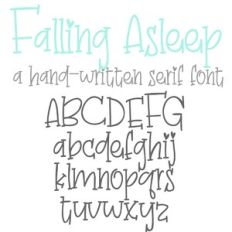 Falling Asleep
a hand-written serif font
ABCDEFG
abcdefghij
klmnopqrs
tuvwxyz